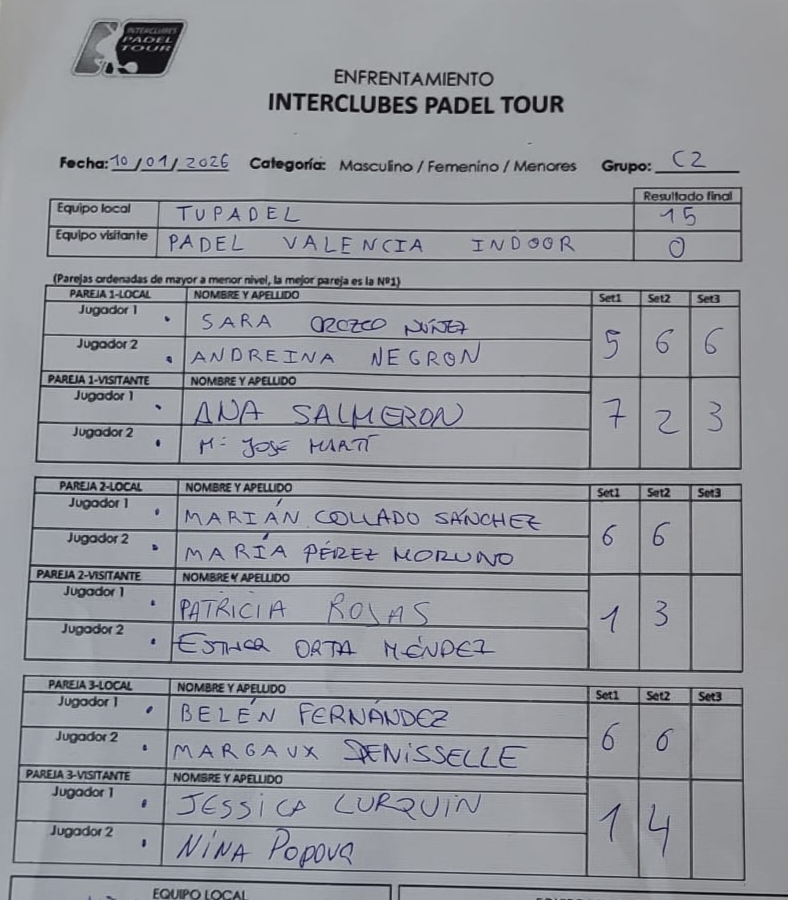 INTERCLUBES
PADEL
TOUR
ENFRENTAMIENTO
INTERCLUBES PADEL TOUR
Fecha: 10/01/2026 Categoría: Masculino / Femenino / Menores Grupo: C2
Resultado final
Equipo local TUPADEL 15
Equipo visitante PADEL VALENCIA INDOOR 0
(Parejas ordenadas de mayor a menor nivel, la mejor pareja es la Nº1)
PAREJA 1-LOCAL NOMBRE Y APELLIDO Set1 Set2 Set3
Jugador 1 SARA OROZCO NÚÑEZ
5 6 6
Jugador 2 ANDREINA NEGRON
PAREJA 1-VISITANTE NOMBRE Y APELLIDO
Jugador 1 ANA SALMERON
7 2 3
Jugador 2 Mª JOSÉ MARTÍ
PAREJA 2-LOCAL NOMBRE Y APELLIDO Set1 Set2 Set3
Jugador 1 MARIÁN COLLADO SÁNCHEZ
6 6
Jugador 2 MARÍA PÉREZ MORUNO
PAREJA 2-VISITANTE NOMBRE Y APELLIDO
Jugador 1 PATRICIA ROJAS
1 3
Jugador 2 ESTHER ORTA MÉNDEZ
PAREJA 3-LOCAL NOMBRE Y APELLIDO Set1 Set2 Set3
Jugador 1 BELÉN FERNÁNDEZ
6 6
Jugador 2 MARGAUX DENISSELLE
PAREJA 3-VISITANTE NOMBRE Y APELLIDO
Jugador 1 JESSICA LURQUIN
1 4
Jugador 2 NINA POPOVA
EQUIPO LOCAL